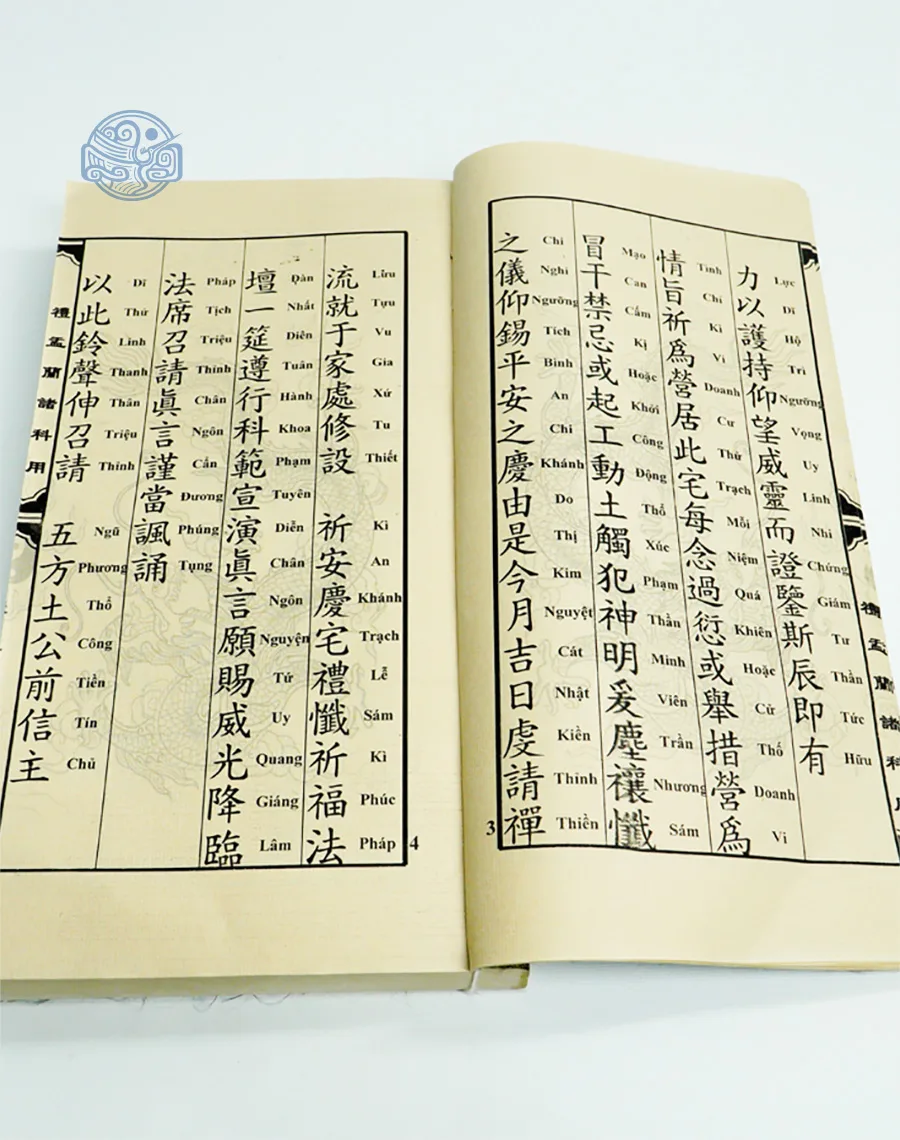 禮盂蘭諸科
力以護持仰望威靈而證鑒斯辰即有
Lực Dĩ Hộ Trì Ngưỡng Vọng Uy Linh Nhi Chứng Giám Tư Thần Tức Hữu
情旨祈爲營居此宅每念過愆或舉措營爲
Tình Chỉ Kì Vi Doanh Cư Thử Trạch Mỗi Niệm Quá Khiên Hoặc Cử Thố Doanh Vi
冒干禁忌或起工動土觸犯神明爰塵禳懺
Mạo Can Cấm Kị Hoặc Khởi Công Động Thổ Xúc Phạm Thần Minh Viên Trần Nhương Sám
之儀仰錫平安之慶由是今月吉日虔請禪
Chi Nghi Ngưỡng Tích Bình An Chi Khánh Do Thị Kim Nguyệt Cát Nhật Kiền Thỉnh Thiền
3
流就于家處修設 祈安慶宅禮懺祈福法
Lưu Tựu Vu Gia Xứ Tu Thiết Kì An Khánh Trạch Lễ Sám Kì Phúc Pháp
壇一筵遵行科範宣演眞言願賜威光降臨
Đàn Nhất Diên Tuân Hành Khoa Phạm Tuyên Diễn Chân Ngôn Nguyện Tứ Uy Quang Giáng Lâm
法席召請眞言謹當諷誦
Pháp Tịch Triệu Thỉnh Chân Ngôn Cẩn Đương Phúng Tụng
以此鈴聲伸召請
Dĩ Thử Linh Thanh Thân Triệu Thỉnh
五方土公前信主
Ngũ Phương Thổ Công Tiền Tín Chủ
4
禮盂蘭諸科用